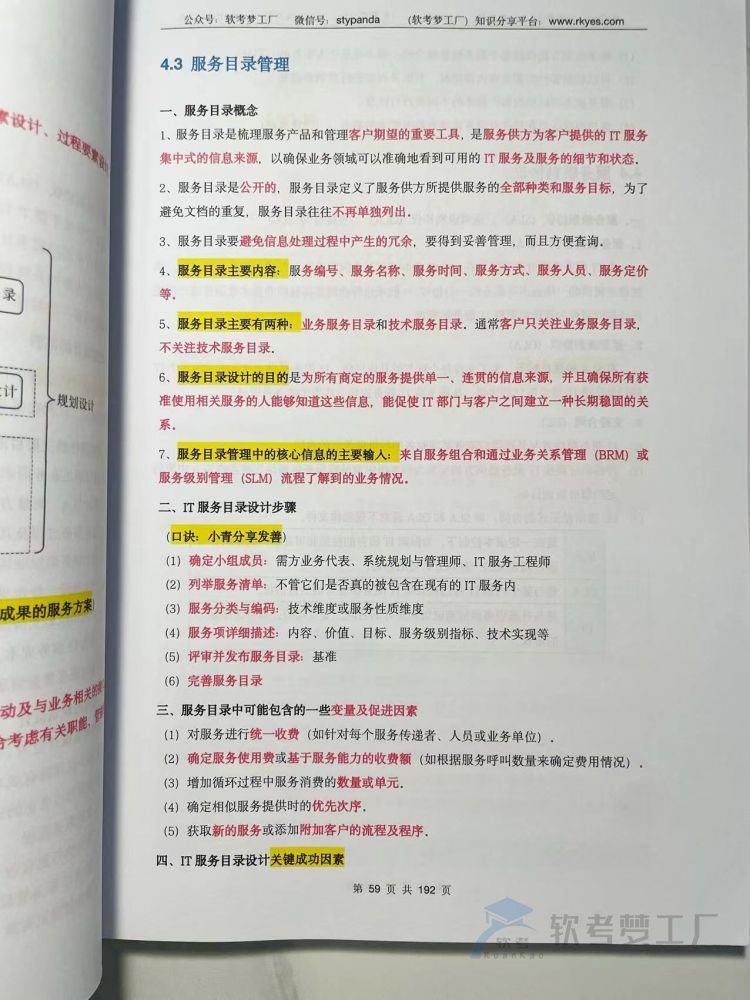 公众号：软考梦工厂 微信号：stypanda （软考梦工厂）知识分享平台：www.rkyes.com
4.3 服务目录管理
一、服务目录概念
1、服务目录是梳理服务产品和管理客户期望的重要工具，是服务供方为客户提供的 IT 服务
集中式的信息来源，以确保业务领域可以准确地看到可用的 IT 服务及服务的细节和状态．
2、服务目录是公开的，服务目录定义了服务供方所提供服务的全部种类和服务目标，为了
避免文档的重复，服务目录往往不再单独列出．
3、服务目录要避免信息处理过程中产生的冗余，要得到妥善管理，而且方便查询．
4、服务目录主要内容：服务编号、服务名称、服务时间、服务方式、服务人员、服务定价
等．
5、服务目录主要有两种：业务服务目录和技术服务目录．通常客户只关注业务服务目录，
不关注技术服务目录．
6、服务目录设计的目的是为所有商定的服务提供单一、连贯的信息来源，并且确保所有获
准使用相关服务的人能够知道这些信息，能促使 IT 部门与客户之间建立一种长期稳固的关
系．
7、服务目录管理中的核心信息的主要输入：来自服务组合和通过业务关系管理（BRM）或
服务级别管理（SLM）流程了解到的业务情况．
二、IT 服务目录设计步骤
（口诀：小青分享发善）
（1）确定小组成员：需方业务代表、系统规划与管理师、IT 服务工程师
（2）列举服务清单：不管它们是否真的被包含在现有的 IT 服务内
（3）服务分类与编码：技术维度或服务性质维度
（4）服务项详细描述：内容、价值、目标、服务级别指标、技术实现等
（5）评审并发布服务目录：基准
（6）完善服务目录
三、服务目录中可能包含的一些变量及促进因素
（1）对服务进行统一收费（如针对每个服务传递者、人员或业务单位）．
（2）确定服务使用费或基于服务能力的收费额（如根据服务呼叫数量来确定费用情况）．
（3）增加循环过程中服务消费的数量或单元．
（4）确定相似服务提供时的优先次序．
（5）获取新的服务或添加附加客户的流程及程序．
四、IT 服务目录设计关键成功因素
第 59 页 共 192 页
素设计、过程要素设计
录
设计
规划设计
成果的服务方案
动及与业务相关的
合考虑有关职能、
软考
RuanKao
软考梦工厂